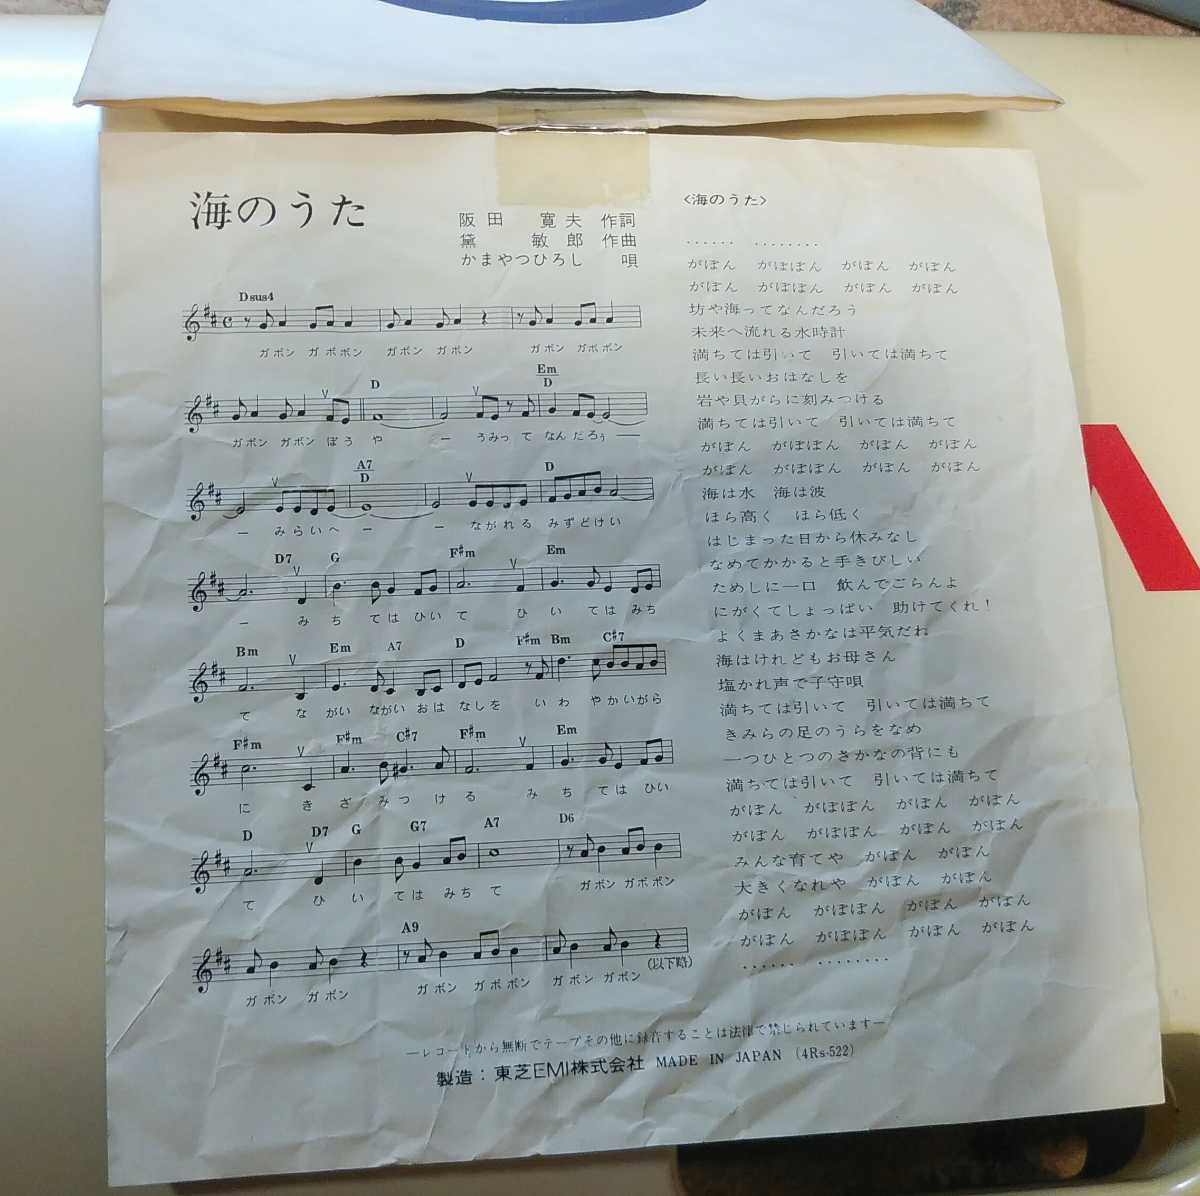 海のうた
阪田 寛夫 作詞
黛 敏郎 作曲
かまやつひろし 唄
Dsus4
ガボン ガボボン ガボン ガボン ガボン ガボボン
D Em/D
ガボン ガボン ぼう や ー うみって なんだろぅ ―
A7/D D
ー みらいへ ー ー ながれる みずどけい
D7 G F#m Em
ー み ち てはひい て ひ い てはみち
Bm Em A7 D F#m Bm C#7
て な がい ながい おは なしを い わ やかいがら
F#m F#m C#7 F#m Em
に き ざ みつ け る み ち てはひい
D D7 G G7 A7 D6
て ひ い てはみち て ガボン ガボボン
A9
ガボン ガボン ガボン ガボボン ガボン ガボン (以下略)
<海のうた>
…… ………
がぼん がぼぼん がぼん がぼん
がぼん がぼぼん がぼん がぼん
坊や海ってなんだろう
未来へ流れる水時計
満ちては引いて 引いては満ちて
長い長いおはなしを
岩や貝がらに刻みつける
満ちては引いて 引いては満ちて
がぼん がぼぼん がぼん がぼん
がぼん がぼぼん がぼん がぼん
海は水 海は波
ほら高く ほら低く
はじまった日から休みなし
なめてかかると手きびしい
ためしに一口 飲んでごらんよ
にがくてしょっぱい 助けてくれ!
よくまあさかなは平気だれ
海はけれどもお母さん
塩かれ声で子守唄
満ちては引いて 引いては満ちて
きみらの足のうらをなめ
一つひとつのさかなの背にも
満ちては引いて 引いては満ちて
がぼん がぼぼん がぼん がぼん
がぼん がぼぼん がぼん がぼん
みんな育てや がぼん がぼん
大きくなれや がぼん がぼん
がぼん がぼぼん がぼん がぼん
がぼん がぼぼん がぼん がぼん
…… ………
―レコードから無断でテープその他に録音することは法律で禁じられています―
製造:東芝EMI株式会社 MADE IN JAPAN (4Rs-522)